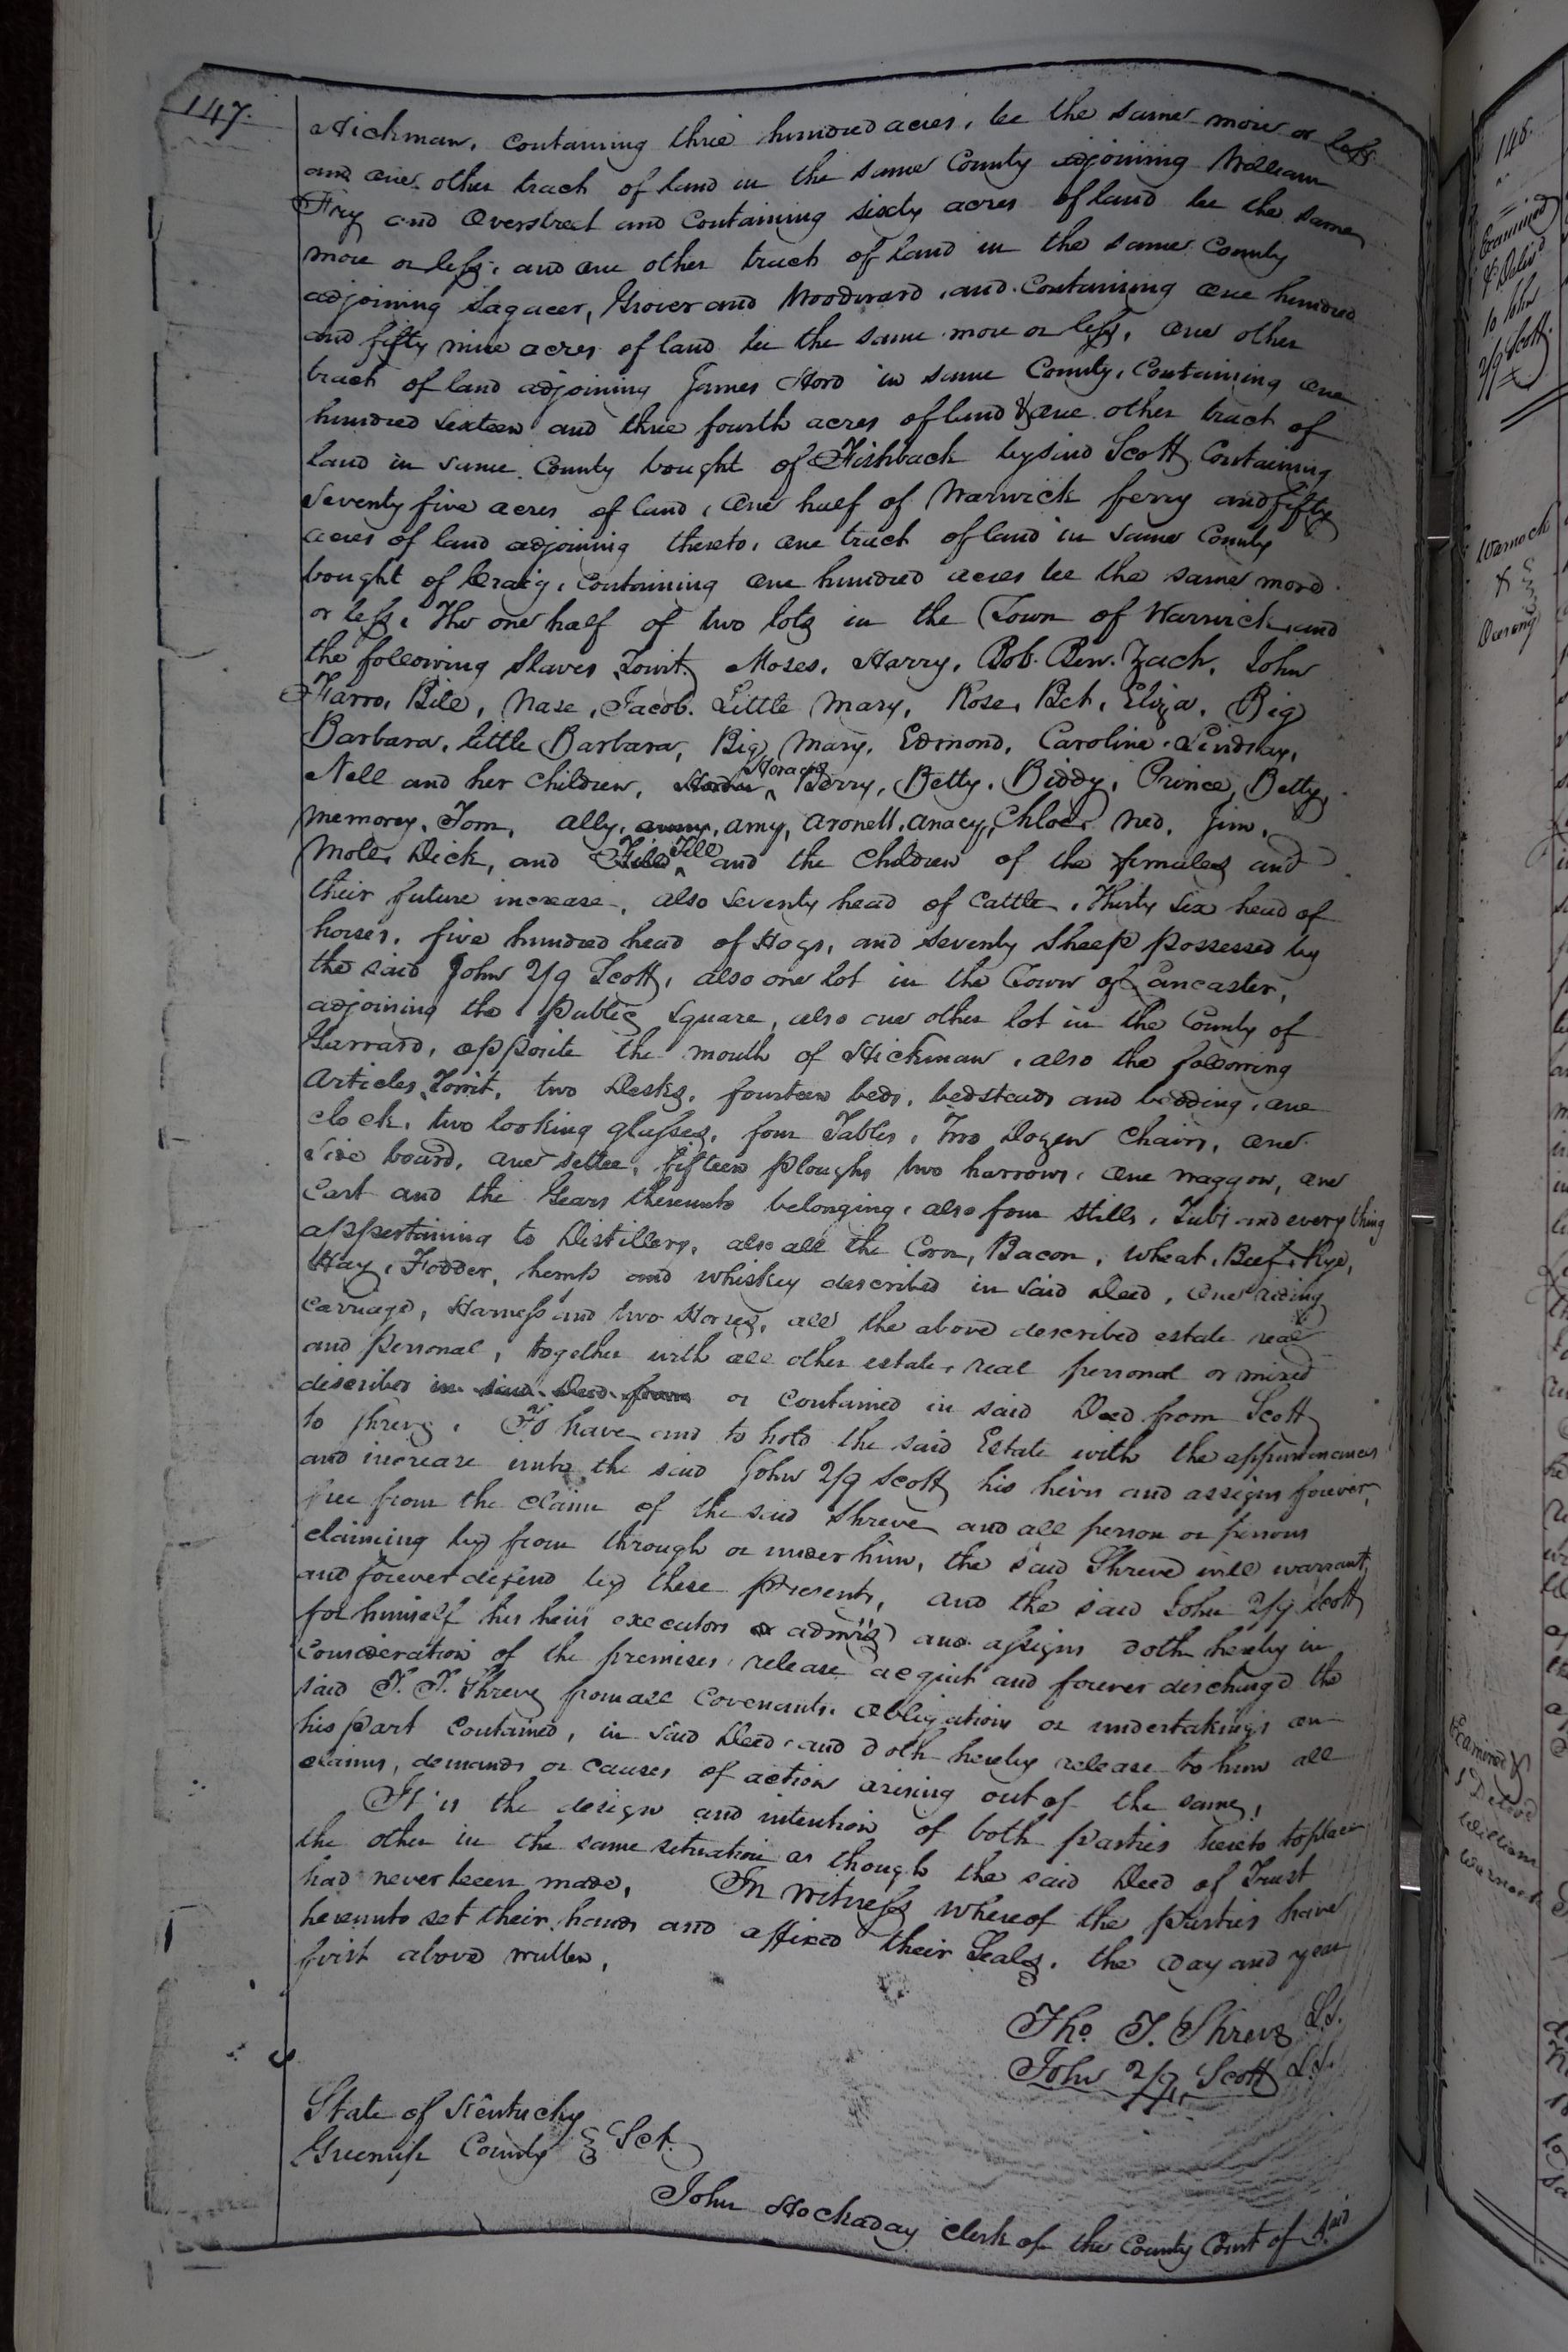 147.
Hickman, containing three hundred acres, be the same more or less
and one other track of land in the same County adjoining William
Fry and Overstreet and Containing sixty acres of land be the same
more or less, and one other track of land in the same County
adjoining Grover and Woodward, and Containing One hundred
and fifty nine acres of land be the same more or less, One other
track of land adjoining James Hord in same County, Containing One
hundred sixteen and three fourth acres of land & One other tract of
land in same County bought of Fishback by said Scott Containing
Seventy five acres of land, One half of Warwick ferry and fifty
acres of land adjoining thereto, One track of land in same County
bought of Craig, Containing One hundred acres be the same more
or less, The one half of two lots in the Town of Warwick, and
the following Slaves Towit, Moses, Harry, Bob. Ben. Zach, John
Farro, Bill, Nase, Jacob. Little Mary, Rose, Bet, Eliza, Big
Barbara, little Barbara, Big Mary, Edmond, Caroline, Lindsay,
Nell and her Children, Horace Berry, Betty, Biddy, Prince, Betty,
Memorey, Tom, Ally, amy, Aronell, Anacy, Chloe, Ned, Jim,
Moll, Dick, and Till and the Children of the females and
their future increase, also Seventy head of Cattle, Thirty Six head of
horses, five hundred head of Hogs, and Seventy Sheep possessed by
the said John M Scott, also one lot in the Town of Lancaster,
adjoining the Public Square, also one other lot in the County of
Garrard, opposite the mouth of Hickman, also the following
Articles Towit, two Desks, fourteen beds, bedsteads and bedding, one
clock, two looking glasses, four Tables, Two Dozen Chairs, One
Side board, One settee, fifteen ploughs two harrows, One waggon, one
Cart and the Gears thereunto belonging, also four Stills, Tubs and every thing
appertaining to Distillery, also all the Corn, Bacon, Wheat, Beef, Rye,
Hay, Fodder, hemp and whiskey described in said Deed, One riding
carriage, Harness and two Horses, all the above described estate real
and personal, together with all other estate, real personal or mixed
described in said Deed from or contained in said Deed from Scott
to Shreve, To have and to hold the said Estate with the appurtenances
and increase unto the said John M Scott his heirs and assigns forever,
free from the claim of the said Shreve and all person or persons
claiming by from through or under him, the said Shreve will warrant
and forever defend by these presents, and the said John M Scott
for himself his heirs executors admrs and assigns doth hereby in
Consideration of the premises release acquit and forever discharge the
said T. T. Shreve from all Covenants, Obligations or undertakings on
his part contained, in said Deed, and doth hereby release to him all
claims, demands or causes of action arising out of the same,
It is the design and intention of both parties hereto to place
the other in the same situation as though the said Deed of Trust
had never been made, In Witness whereof the parties have
hereunto set their hands and affixed their Seals, the day and year
first above written,
Tho. T. Shreve L.S.
John M Scott L.S.
State of Kentucky
Greenup County Sct.
John Hockaday Clerk of the County Court of said
148.
Examined
& Deliv'd
to John
M Scott
Warnock
&
Examined &
Deliv'd
William
Warnock